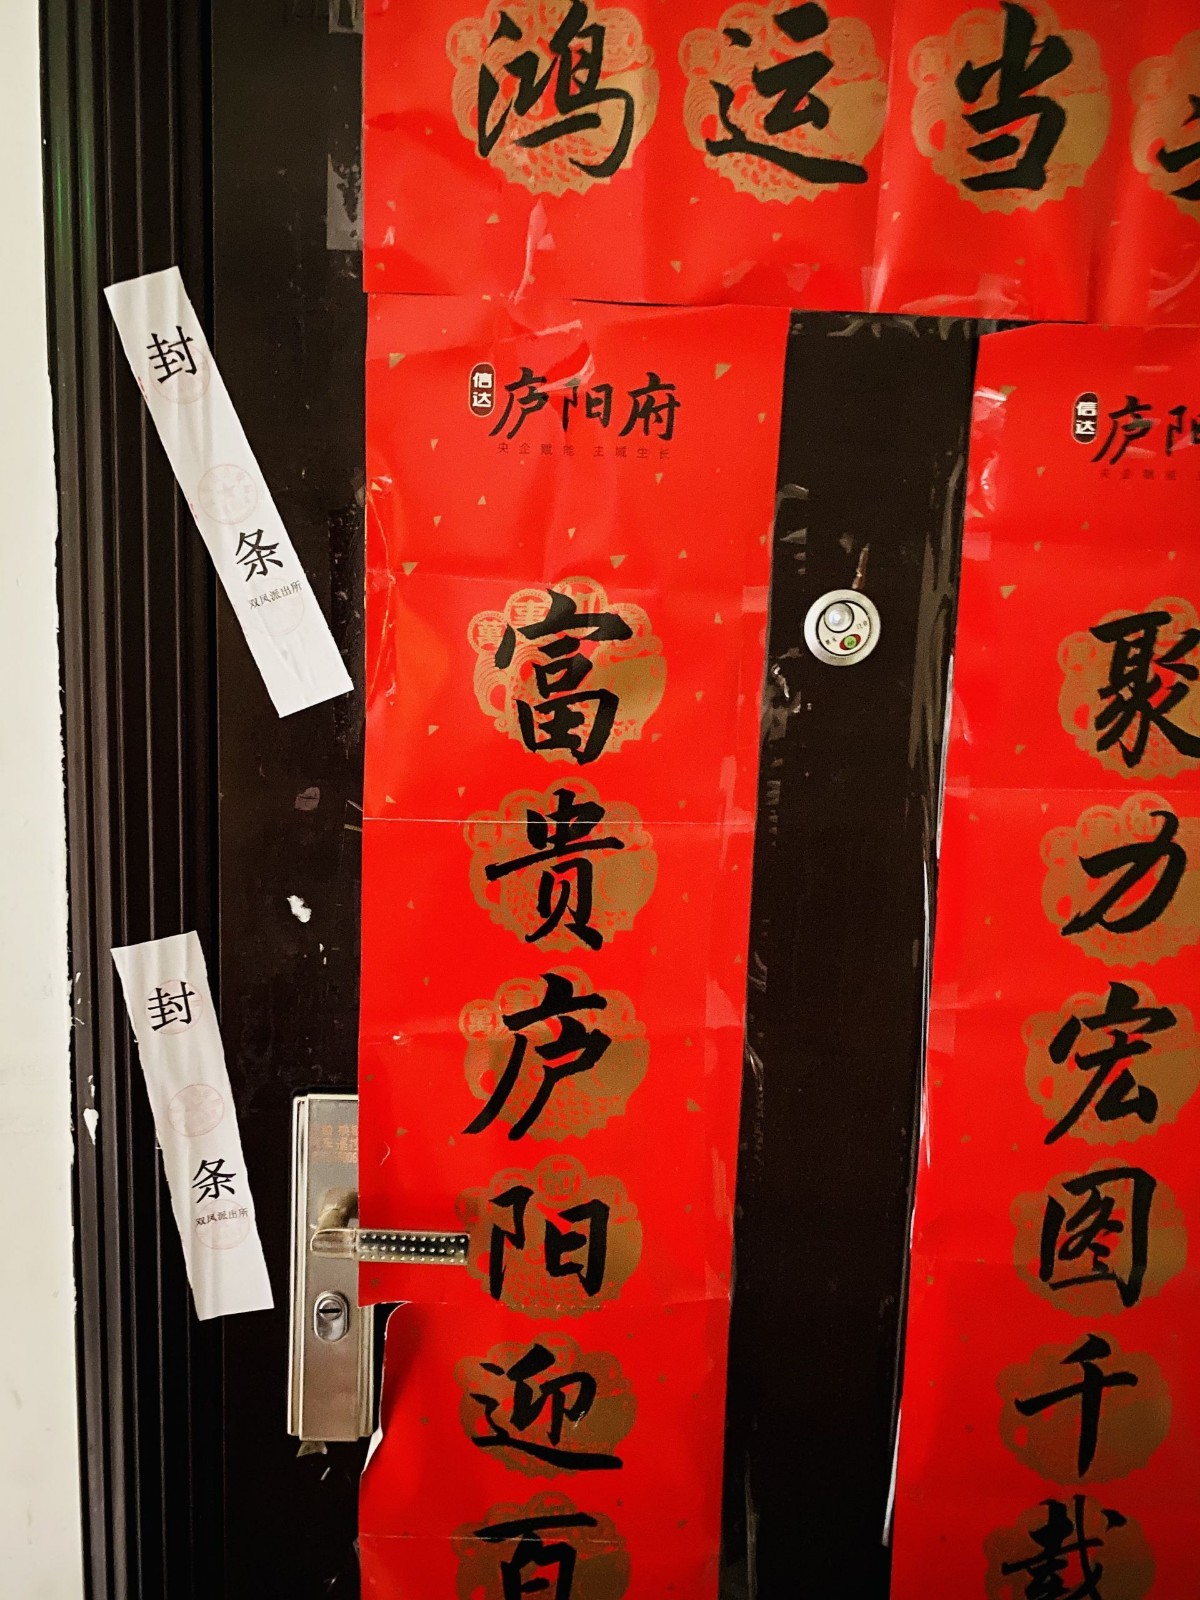 鸿运当
封条
双凤派出所
信达
庐阳府
央企赋能 主城生长
富贵庐阳迎百
信达
庐阳
央企赋能
聚力宏图千载
封条
双凤派出所